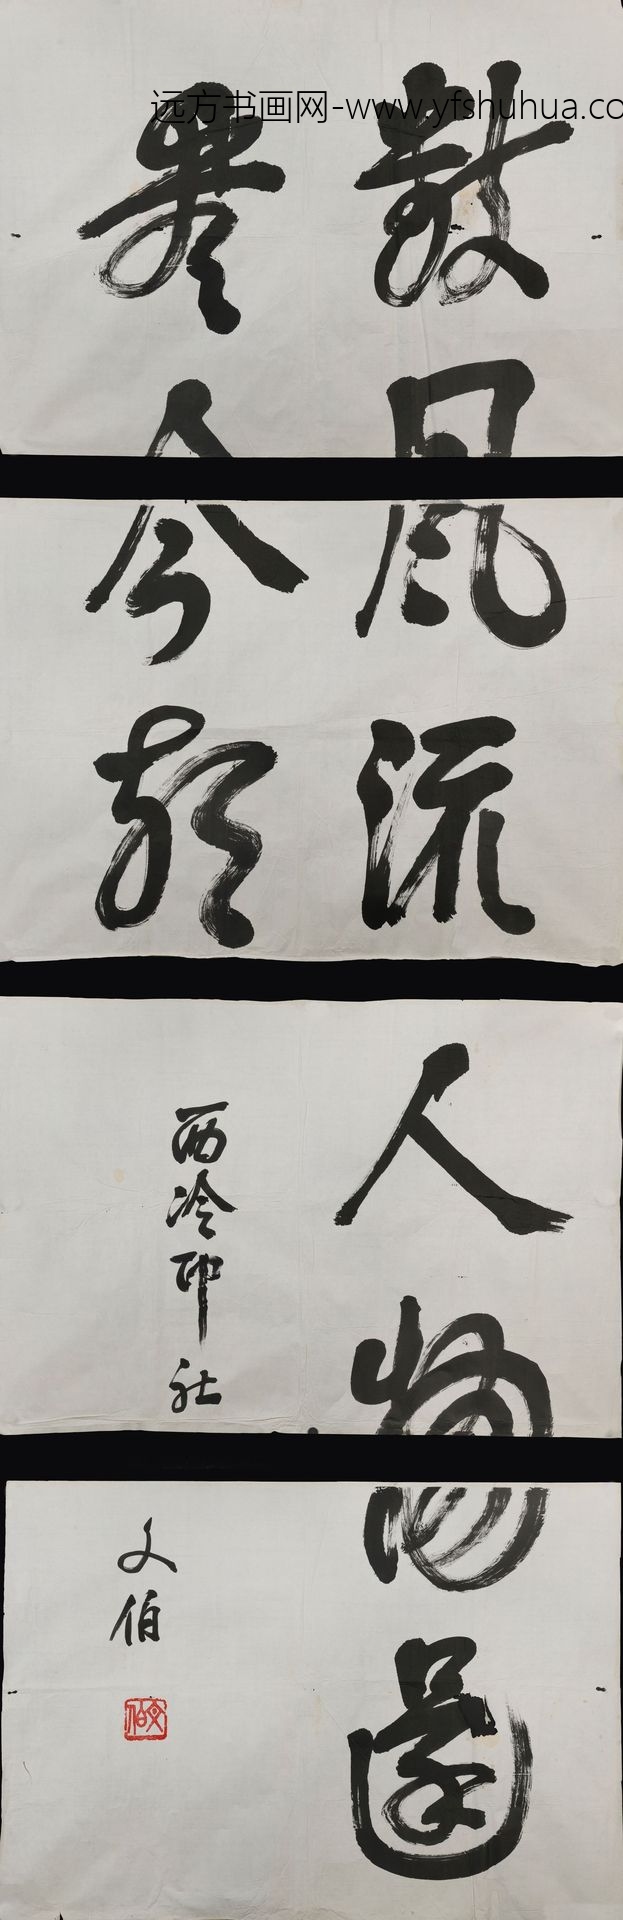 远方书画网-www.yfshuhua.co
数风流人物还
看今朝
西冷印社
文伯
文伯